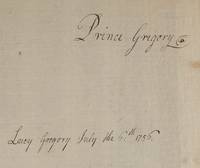 Prince Gregory
Lucy Gregory July the 6th 1756